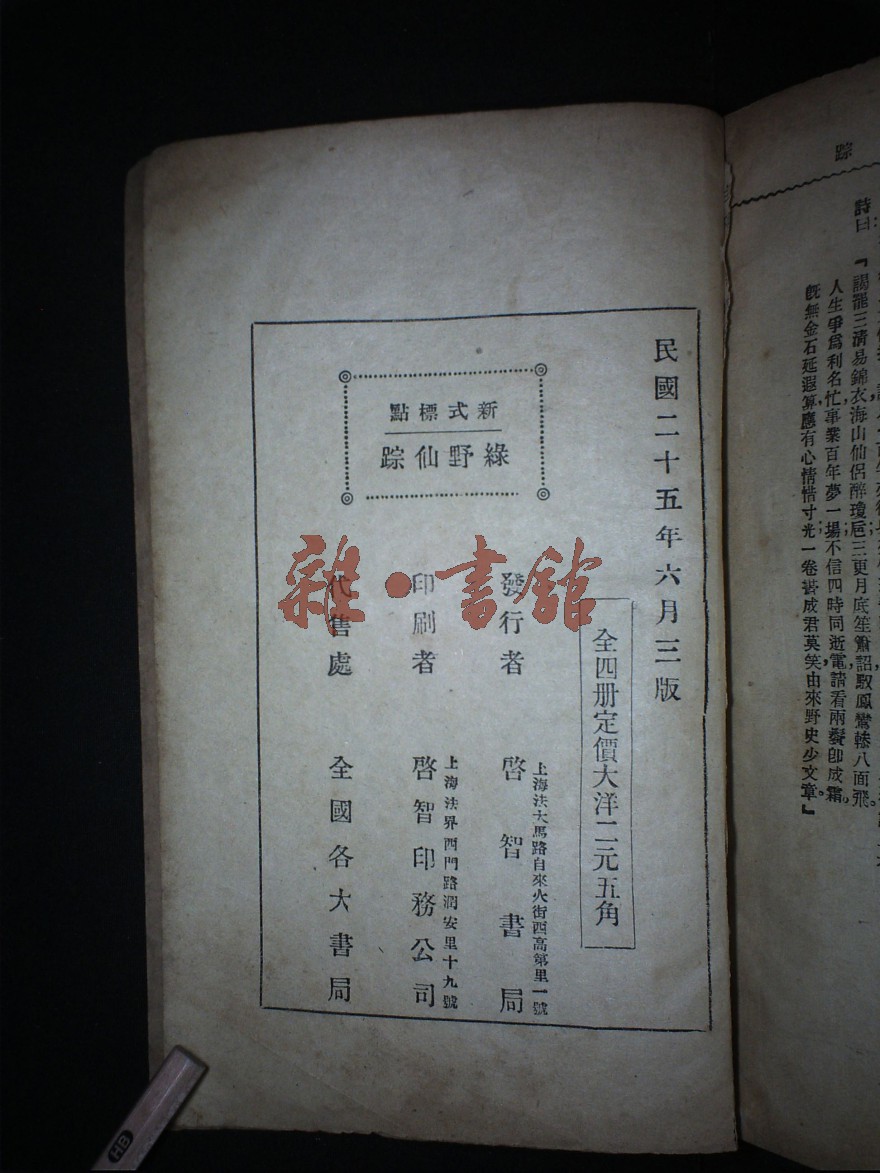 踪
詩曰
『謁罷三清易錦衣海山仙侶醉瓊巵三更月底笙簫韶馭鳳鸞轉八面飛。
人生爭爲利名忙事業百年夢一塲不信四時同逝電請看兩鬢卽成霜。
旣無金石延遐算應有心情惜寸光一卷書成君莫笑由來野史少文章。』
民國二十五年六月三版
全四册定價大洋二元五角
新式標點
綠野仙踪
發行者
上海法大馬路自來火街西高第里一號
啓智書局
印刷者
上海法界西門路潤安里十九號
啓智印務公司
代售處
全國各大書局
雜·書館
HB